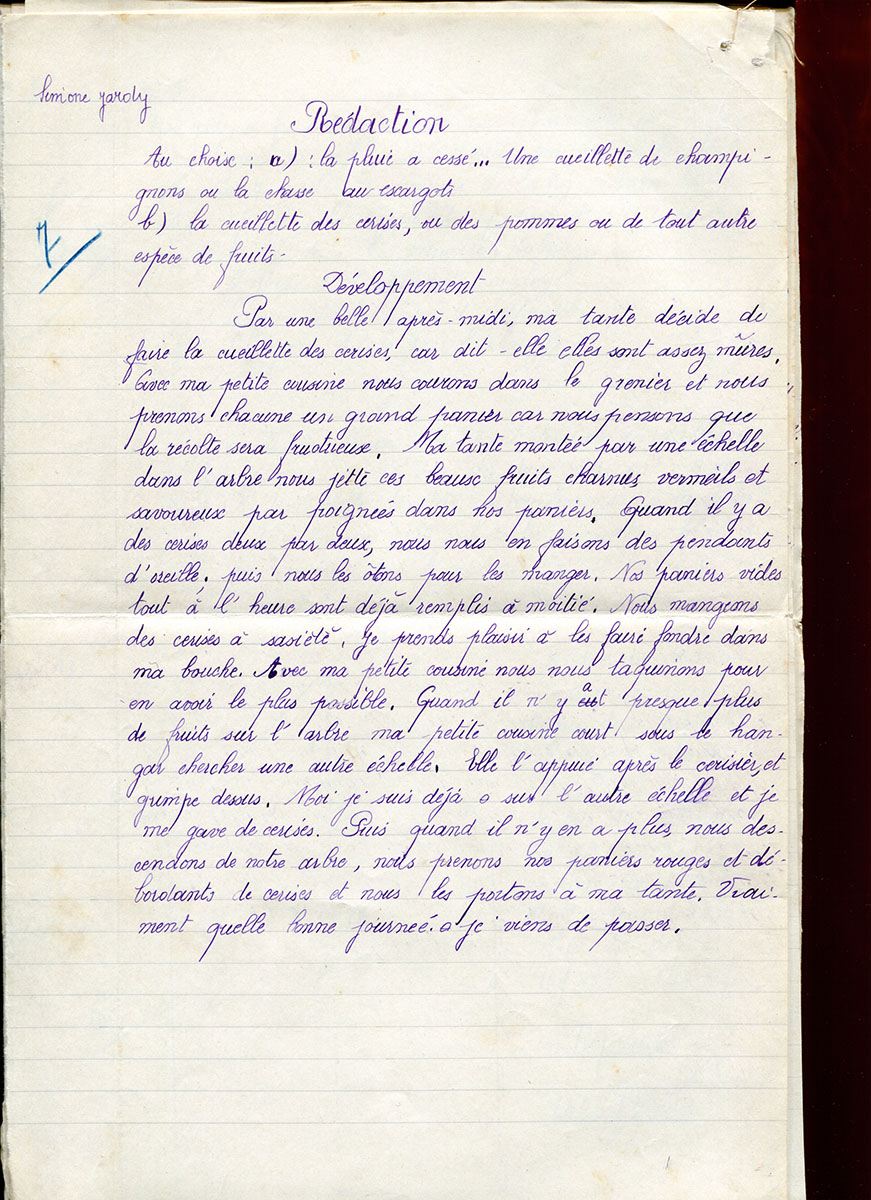 Simone Jardy
Rédaction
Au choise : a) : la pluie a cessé... Une cueillette de champi-
gnons ou la chasse au escargots
b) la cueillette des cerises, ou des pommes ou de tout autre
espèce de fruits-
7
Développement
Par une belle après-midi, ma tante décide de
faire la cueillette des cerises, car dit-elle elles sont assez mûres.
Avec ma petite cousine nous courons dans le grenier et nous
prenons chacune un grand panier car nous pensons que
la récolte sera fructueuse. Ma tante montée par une échelle
dans l'arbre nous jette ces beaux fruits charnus vermeils et
savoureux par poignées dans nos paniers. Quand il y a
des cerises deux par deux, nous nous en faisons des pendants
d'oreille. puis nous les ôtons pour les manger. Nos paniers vides
tout à l'heure sont déjà remplis à moitié. Nous mangeons
des cerises à satiété. je prends plaisir à les faire fondre dans
ma bouche. Avec ma petite cousine nous nous taquinons pour
en avoir le plus possible. Quand il n'y a presque plus
de fruits sur l'arbre ma petite cousine court sous le han-
gar chercher une autre échelle. Elle l'appuie après le cerisier, et
grimpe dessus. Moi je suis déjà sur l'autre échelle et je
me gave de cerises. Puis quand il n'y en a plus, nous des-
cendons de notre arbre, nous prenons nos paniers rouges et dé-
bordants de cerises et nous les portons à ma tante. Vrai-
ment quelle bonne journeé. je viens de passer.